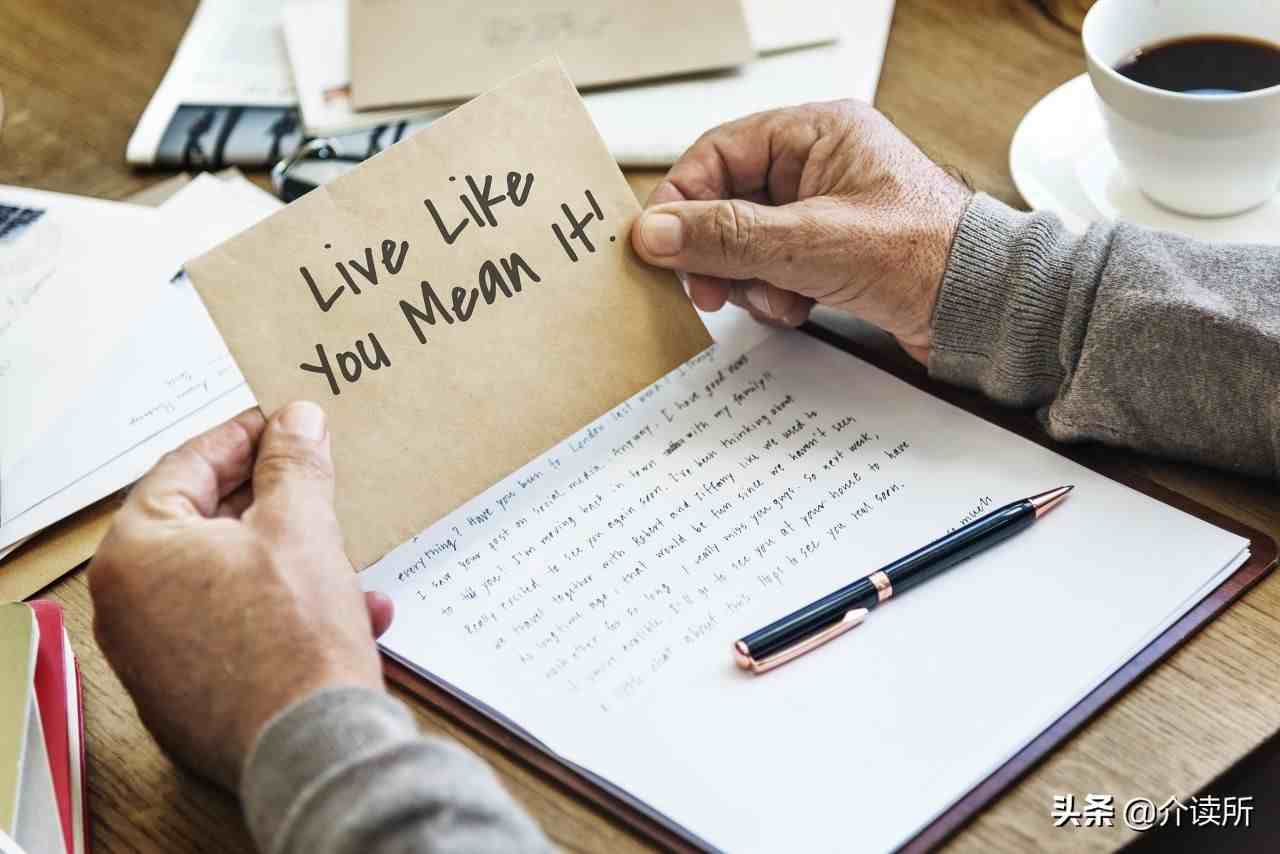 Live Like
You Mean It!
everything? Have you been to London last
I saw your post on social media. Anyway, I have good news
to tell you! I'm moving back in town with my family!!
Really excited to see you again soon. I've been thinking about
we travel together with Robert and Tiffany like we used to
longtime ago, that would be fun since we haven't seen
each other for so long. I really miss you guys. So next week,
I'll go to see you at your house to have
chat about this. Hope to see you real soon.
much
头条 @介读所